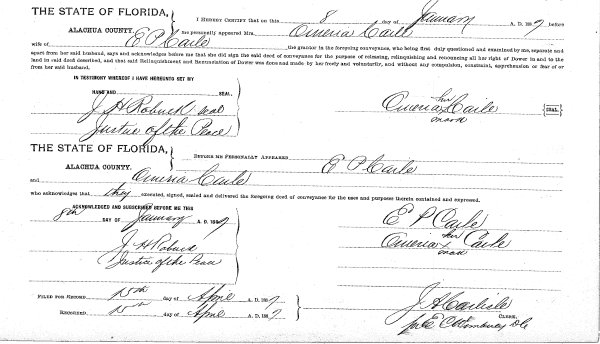 THE STATE OF FLORIDA,
ALACHUA COUNTY.
I HEREBY CERTIFY that on this 8 day of January A. D. 1887 before
me personally appeared Mrs. Omeria Carle
wife of E P Carle the grantor in the foregoing conveyance, who being first duly questioned and examined by me, separate and
apart from her said husband, says and acknowledges before me that she did sign the said deed of conveyance for the purpose of releasing, relinquishing and renouncing all her right of Dower in and to the
land in said deed described, and that said Relinquishment and Renunciation of Dower was done and made by her freely and voluntarily, and without any compulsion, constraint, apprehension or fear of or
from her said husband.
IN TESTIMONY WHEREOF I HAVE HEREUNTO SET BY
HAND AND SEAL.
J H Robuck seal
Justice of the Peace
her
Omeria x Carle {SEAL}
mark
THE STATE OF FLORIDA,
ALACHUA COUNTY.
BEFORE ME PERSONALLY APPEARED E P Carle
and Omeria Carle
who acknowledges that they executed, signed, sealed and delivered the foregoing deed of conveyance for the uses and purposes therein contained and expressed.
ACKNOWLEDGED AND SUBSCRIBED BEFORE ME THIS
8th DAY OF January A. D. 1887
J H Robuck
Justice of the Peace
E P Carle
her
Omeria x Carle
mark
FILED FOR RECORD 15th day of April A. D. 1887
RECORDED 15th day of April A. D. 1887
J A Carlisle
CLERK.
per E C